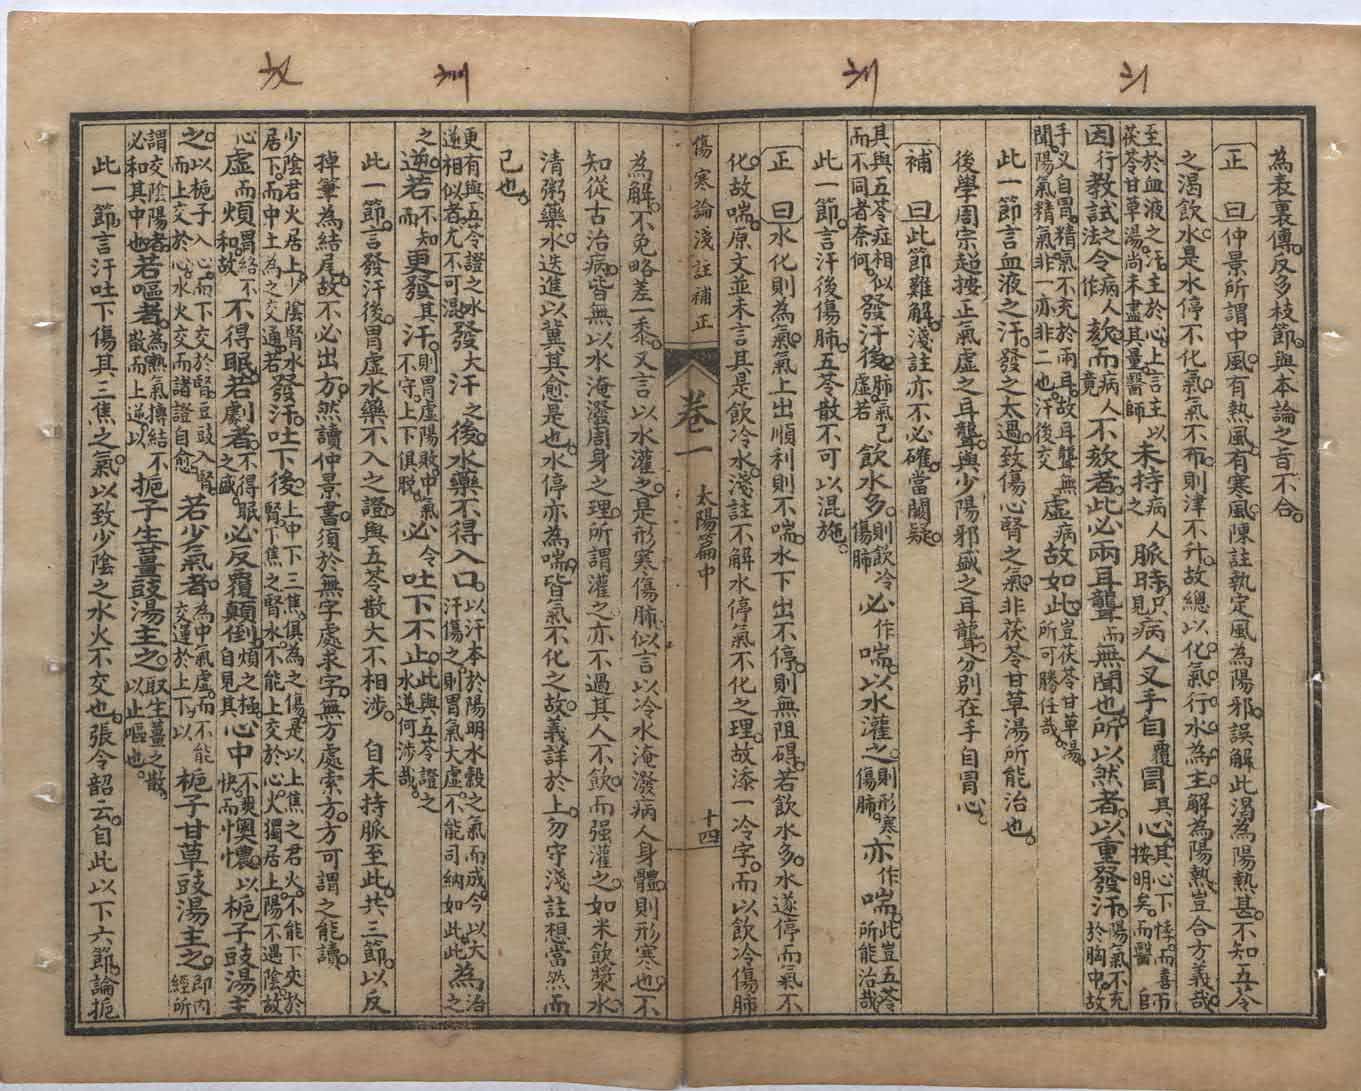 為表裏傳。反多枝節。與本論之旨不合。
正曰仲景所謂中風。有熱風。有寒風。陳註執定風為陽邪。誤解此渴為陽熱甚。不知五苓
之渴飲水。是水停不化氣。氣不布。則津不升。故總以化氣行水為主。解為陽熱。豈合方義哉。
至於血液之汗。主於心。上言主以茯苓甘草湯。尚未盡其量。醫師未持病人之脈時。只見病人叉手自覆冒其心。其心下悸。而喜按明矣。而醫師
因行教試之法。令作欬而病人竟不欬者。此必兩耳聾而無聞也。所以然者。以重發汗。陽氣不充於胸中。故
手叉自冒。精氣不充於兩耳。故耳聾無聞。陽氣精氣。非一亦非二也。汗後交虛病故如此。豈茯苓甘草湯。所可勝任哉。
此一節言血液之汗。發之太過。致傷心腎之氣。非茯苓甘草湯所能治也。
後學周宗超按正氣虛之耳聾。與少陽邪盛之耳聾。分別在手自冒心。
補曰此節難解。淺註亦不必確。當闕疑。
其與五苓症相似而不同者奈何。發汗後。肺氣已虛。若飲水多。則飲冷傷肺必作喘。以水灌之。則形寒傷肺。亦作喘。此豈五苓所能治哉
此一節。言汗後傷肺。五苓散不可以混施。
正曰水化則為氣。氣上出順利則不喘。水下出不停。則無阻碍。若飲水多。水遂停而氣不
化。故喘。原文並未言其是飲冷水。淺註不解水停氣不化之理。故添一冷字。而以飲冷傷肺
傷寒論淺註補正 卷一 太陽篇中 十四
為解。不免略差一黍。又言以水灌之。是形寒傷肺。似言以冷水淹潑病人身體。則形寒也。不
知從古治病。皆無以水淹潑周身之理。所謂灌之。亦不過其人不飲。而强灌之。如米飲漿水
清粥藥水。迭進以冀其愈是也。水停亦為喘。皆氣不化之故。義詳於上。勿守淺註想當然而
已也。
更有與五苓證之水逆相似者。尤不可混。發大汗之後。水藥不得入口。以汗本於陽明水穀之氣而成。今以大汗傷之。則胃氣大虛。不能司納如此。此為治之
之逆。若不知而更發其汗。則胃虛陽敗。中氣不守。上下俱脫。必令吐下不止。此與五苓證之水逆何涉哉。
此一節。言發汗後胃虛水藥不入之證。與五苓散大不相涉。 自未持脈至此。共三節。以反
掉筆為結尾。故不必出方。然讀仲景書。須於無字處求字。無方處索方。方可謂之能讀。
少陰君火居上。少陰腎水居下。而中土為之交通。若發汗吐下後。上中下三焦。俱為之傷。是以上焦之君火。不能下交於腎。下焦之腎水。不能上交於心。火獨居上。陽不遇陰。故
心虛而煩。胃絡不和。故不得眠。若劇者。不得眠之盛。必反覆顛倒。煩之極自見其心中不爽快。而懊憹。以梔子豉湯主
之。以梔子入心。而下交於腎。豆豉入腎。而上交於心。水火交而諸證自愈若少氣者。為中氣虛。而不能交運於上下。以梔子甘草豉湯主之。即內經所
謂交陰陽者。必和其中也。若嘔者。為熱氣搏結不散而上逆。以梔子生薑豉湯主之。取生薑之散。以止嘔也。
此一節。言汗吐下傷其三焦之氣。以致少陰之水火不交也。張令韶云。自此以下六節。論梔